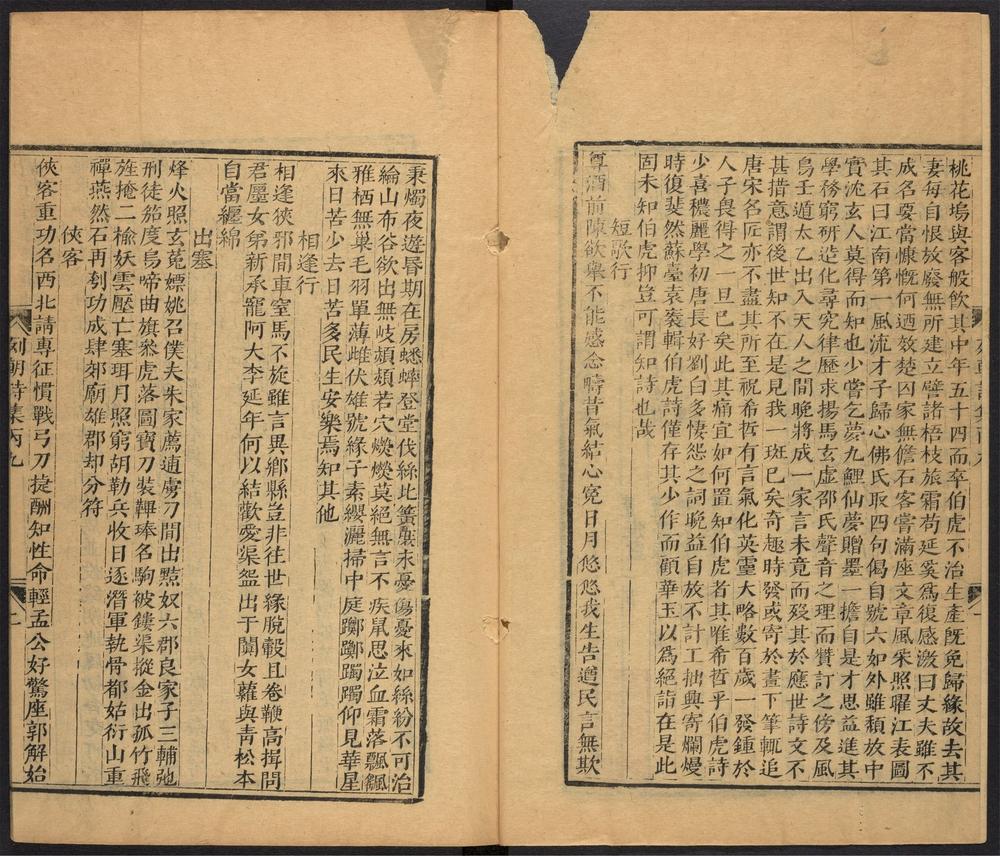 桃花塢與客般飲其中年五十四而卒伯虎不治生產旣免歸緣故去其
妻每自恨放廢無所建立譬諸梧枝旅霜苟延奚爲復感激曰丈夫雖不
成名要當慷慨何迺效楚囚家無儋石客嘗滿座文章風采照曜江表圖
其石曰江南第一風流才子歸心佛氏取四句偈自號六如外雖頹放中
實沈玄人莫得而知也少嘗乞夢九鯉仙夢贈墨一擔自是才思益進其
學務窮研造化尋究律歷求揚馬玄虛邵氏聲音之理而贊訂之傍及風
鳥壬遁太乙出入天人之間晚將成一家言未竟而歿其於應世詩文不
甚措意謂後世知不在是見我一斑已矣奇趣時發或寄於畫下筆輒追
唐宋名匠亦不盡其所至祝希哲有言氣化英靈大略數百歲一發鍾於
人子畏得之一旦已矣此其痛宜如何置知伯虎者其唯希哲乎伯虎詩
少喜穠麗學初唐長好劉白多悽怨之詞晚益自放不計工拙興寄爛熳
時復斐然蘇臺袁袠輯伯虎詩僅存其少作而顧華玉以爲絕詣在是此
固未知伯虎抑豈可謂知詩也哉
短歌行
尊酒前陳欲舉不能感念疇昔氣結心寃日月悠悠我生告遒民言無欺
秉燭夜遊昬期在房蟋蟀登堂伐絲比簧庶永憂傷憂來如絲紛不可治
綸山布谷欲出無岐熲熲若穴燠燠莫絕無言不疾鼠思泣血霜落飄飄
雅栖無巢毛羽單薄雌伏雄號緣子素纓灑掃中庭躑躅躅躅仰見華星
來日苦少去日苦多民生安樂焉知其他
相逢行
相逢狹邪間車窒馬不旋雖言異鄉縣豈非往世緣脫轂且卷鞭高揖問
君廛女弟新承寵阿大李延年何以結歡愛渠盌出于闐女蘿與青松本
自當纏綿
出塞
烽火照玄菟嫖姚召僕夫朱家薦逋虜刀間出黠奴六郡良家子三輔弛
刑徒笳度烏啼曲旗參虎落圖寶刀裝鞞琫名駒被鏤渠摐金出孤竹飛
旌掩二楡妖雲壓亡塞珥月照窮胡勒兵收日逐潛軍執骨都姑衍山重
禪燕然石再刓功成肆郊廟雄郡却分符
俠客
俠客重功名西北請專征慣戰弓刀捷酬知性命輕孟公好驚座郭解始
列朝詩集丙九
二